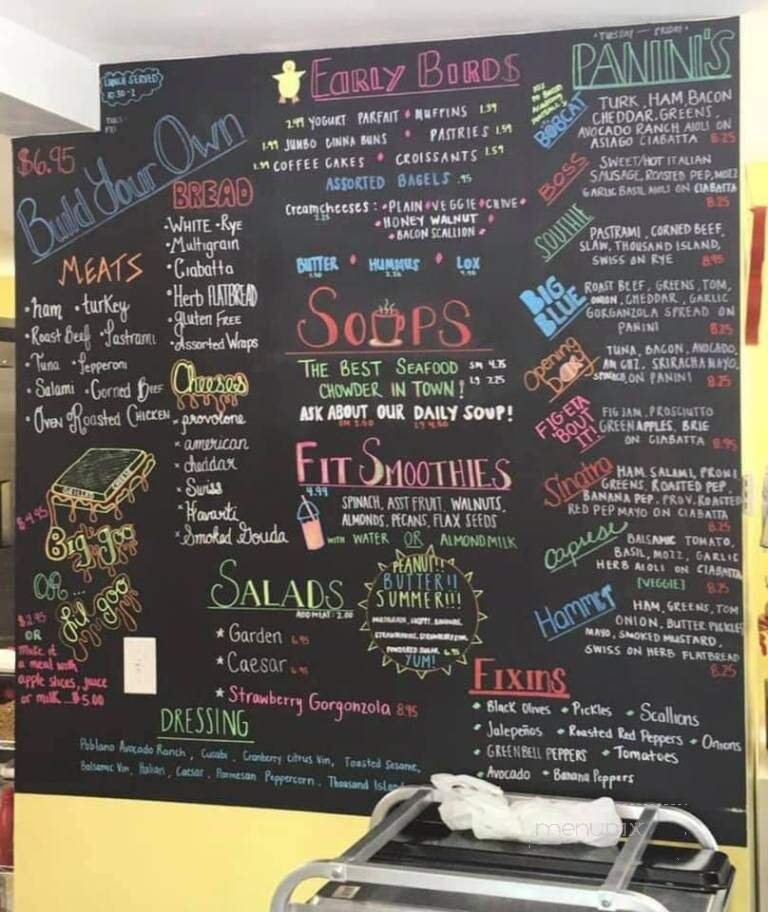 LUNCH SERVED
10:30-2
$6.95
Build Your Own
MEATS
• ham • turkey
• Roast Beef • Pastrami
• Tuna • Pepperoni
• Salami • Corned Beef
• Oven Roasted Chicken
BREAD
• WHITE • Rye
• Multigrain
• Ciabatta
• Herb FLATBREAD
• Gluten Free
• Assorted Wraps
Cheeses
× provolone
× american
× cheddar
× Swiss
× Havarti
× Smoked Gouda
GRILLED CHEESE
$4.95
Big goo
OR...
Lil goo
$2.95
OR
make it
a meal with
apple slices, juice
or milk...$5.00
EARLY BIRDS
2.99 YOGURT PARFAIT • MUFFINS 1.59
1.99 JUMBO CINNA BUNS • PASTRIES 1.59
COFFEE CAKES • CROISSANTS 1.59
ASSORTED BAGELS .95
Creamcheeses: • PLAIN • VEGGIE • CHIVE •
• HONEY WALNUT •
• BACON SCALLION •
BUTTER • HUMMUS • LOX
SOUPS
THE BEST SEAFOOD SM 4.75
CHOWDER IN TOWN! LG 7.25
ASK ABOUT OUR DAILY SOUP!
FIT SMOOTHIES
4.99
SPINACH, ASST FRUIT, WALNUTS,
ALMONDS, PECANS, FLAX SEEDS
WITH WATER OR ALMONDMILK
SALADS
ADD MEAT: 2.00
* Garden 6.95
* Caesar 6.95
* Strawberry Gorgonzola 8.95
PEANUT!!
BUTTER!!
SUMMER!!!
POWDERED SUGAR 6.95
YUM!
DRESSING
Poblano Avocado Ranch, Cusabi, Cranberry Citrus Vin, Toasted Sesame,
Balsamic Vin, Italian, Caesar, Parmesan Peppercorn, Thousand Island
TUESDAY - FRIDAY
PANINI'S
BOBCAT
TURK, HAM, BACON
CHEDDAR, GREENS,
AVOCADO RANCH AIOLI ON
ASIAGO CIABATTA 8.25
BOSS
SWEET/HOT ITALIAN
SAUSAGE, ROASTED PEP, MOZZ
GARLIC BASIL AIOLI ON CIABATTA
8.25
SOUTHIE
PASTRAMI, CORNED BEEF,
SLAW, THOUSAND ISLAND,
SWISS ON RYE 8.95
BIG BLUE
ROAST BEEF, GREENS, TOM,
ONION, CHEDDAR, GARLIC
GORGANZOLA SPREAD ON
PANINI 8.25
Opening Day
TUNA, BACON, AVOCADO,
AM CHZ. SRIRACHA MAYO,
SPINACH ON PANINI 8.25
FIG ETA 'BOUT IT!
FIG JAM, PROSCIUTTO
GREEN APPLES, BRIE
ON CIABATTA 8.95
Sinatra
HAM, SALAMI, PROVI
GREENS, ROASTED PEP,
BANANA PEP. PROV. ROASTED
RED PEP MAYO ON CIABATTA
8.25
Caprese
BALSAMIC TOMATO,
BASIL, MOZZ, GARLIC
HERB AIOLI ON CIABATTA
[VEGGIE] 8.25
Hammer
HAM, GREENS, TOM
ONION, BUTTER PICKLE
MAYO, SMOKED MUSTARD,
SWISS ON HERB FLATBREAD
8.25
FIXINS
• Black Olives • Pickles • Scallions
• Jalepeños • Roasted Red Peppers • Onions
• GREEN BELL PEPPERS • Tomatoes
• Avocado • Banana Peppers
menupix